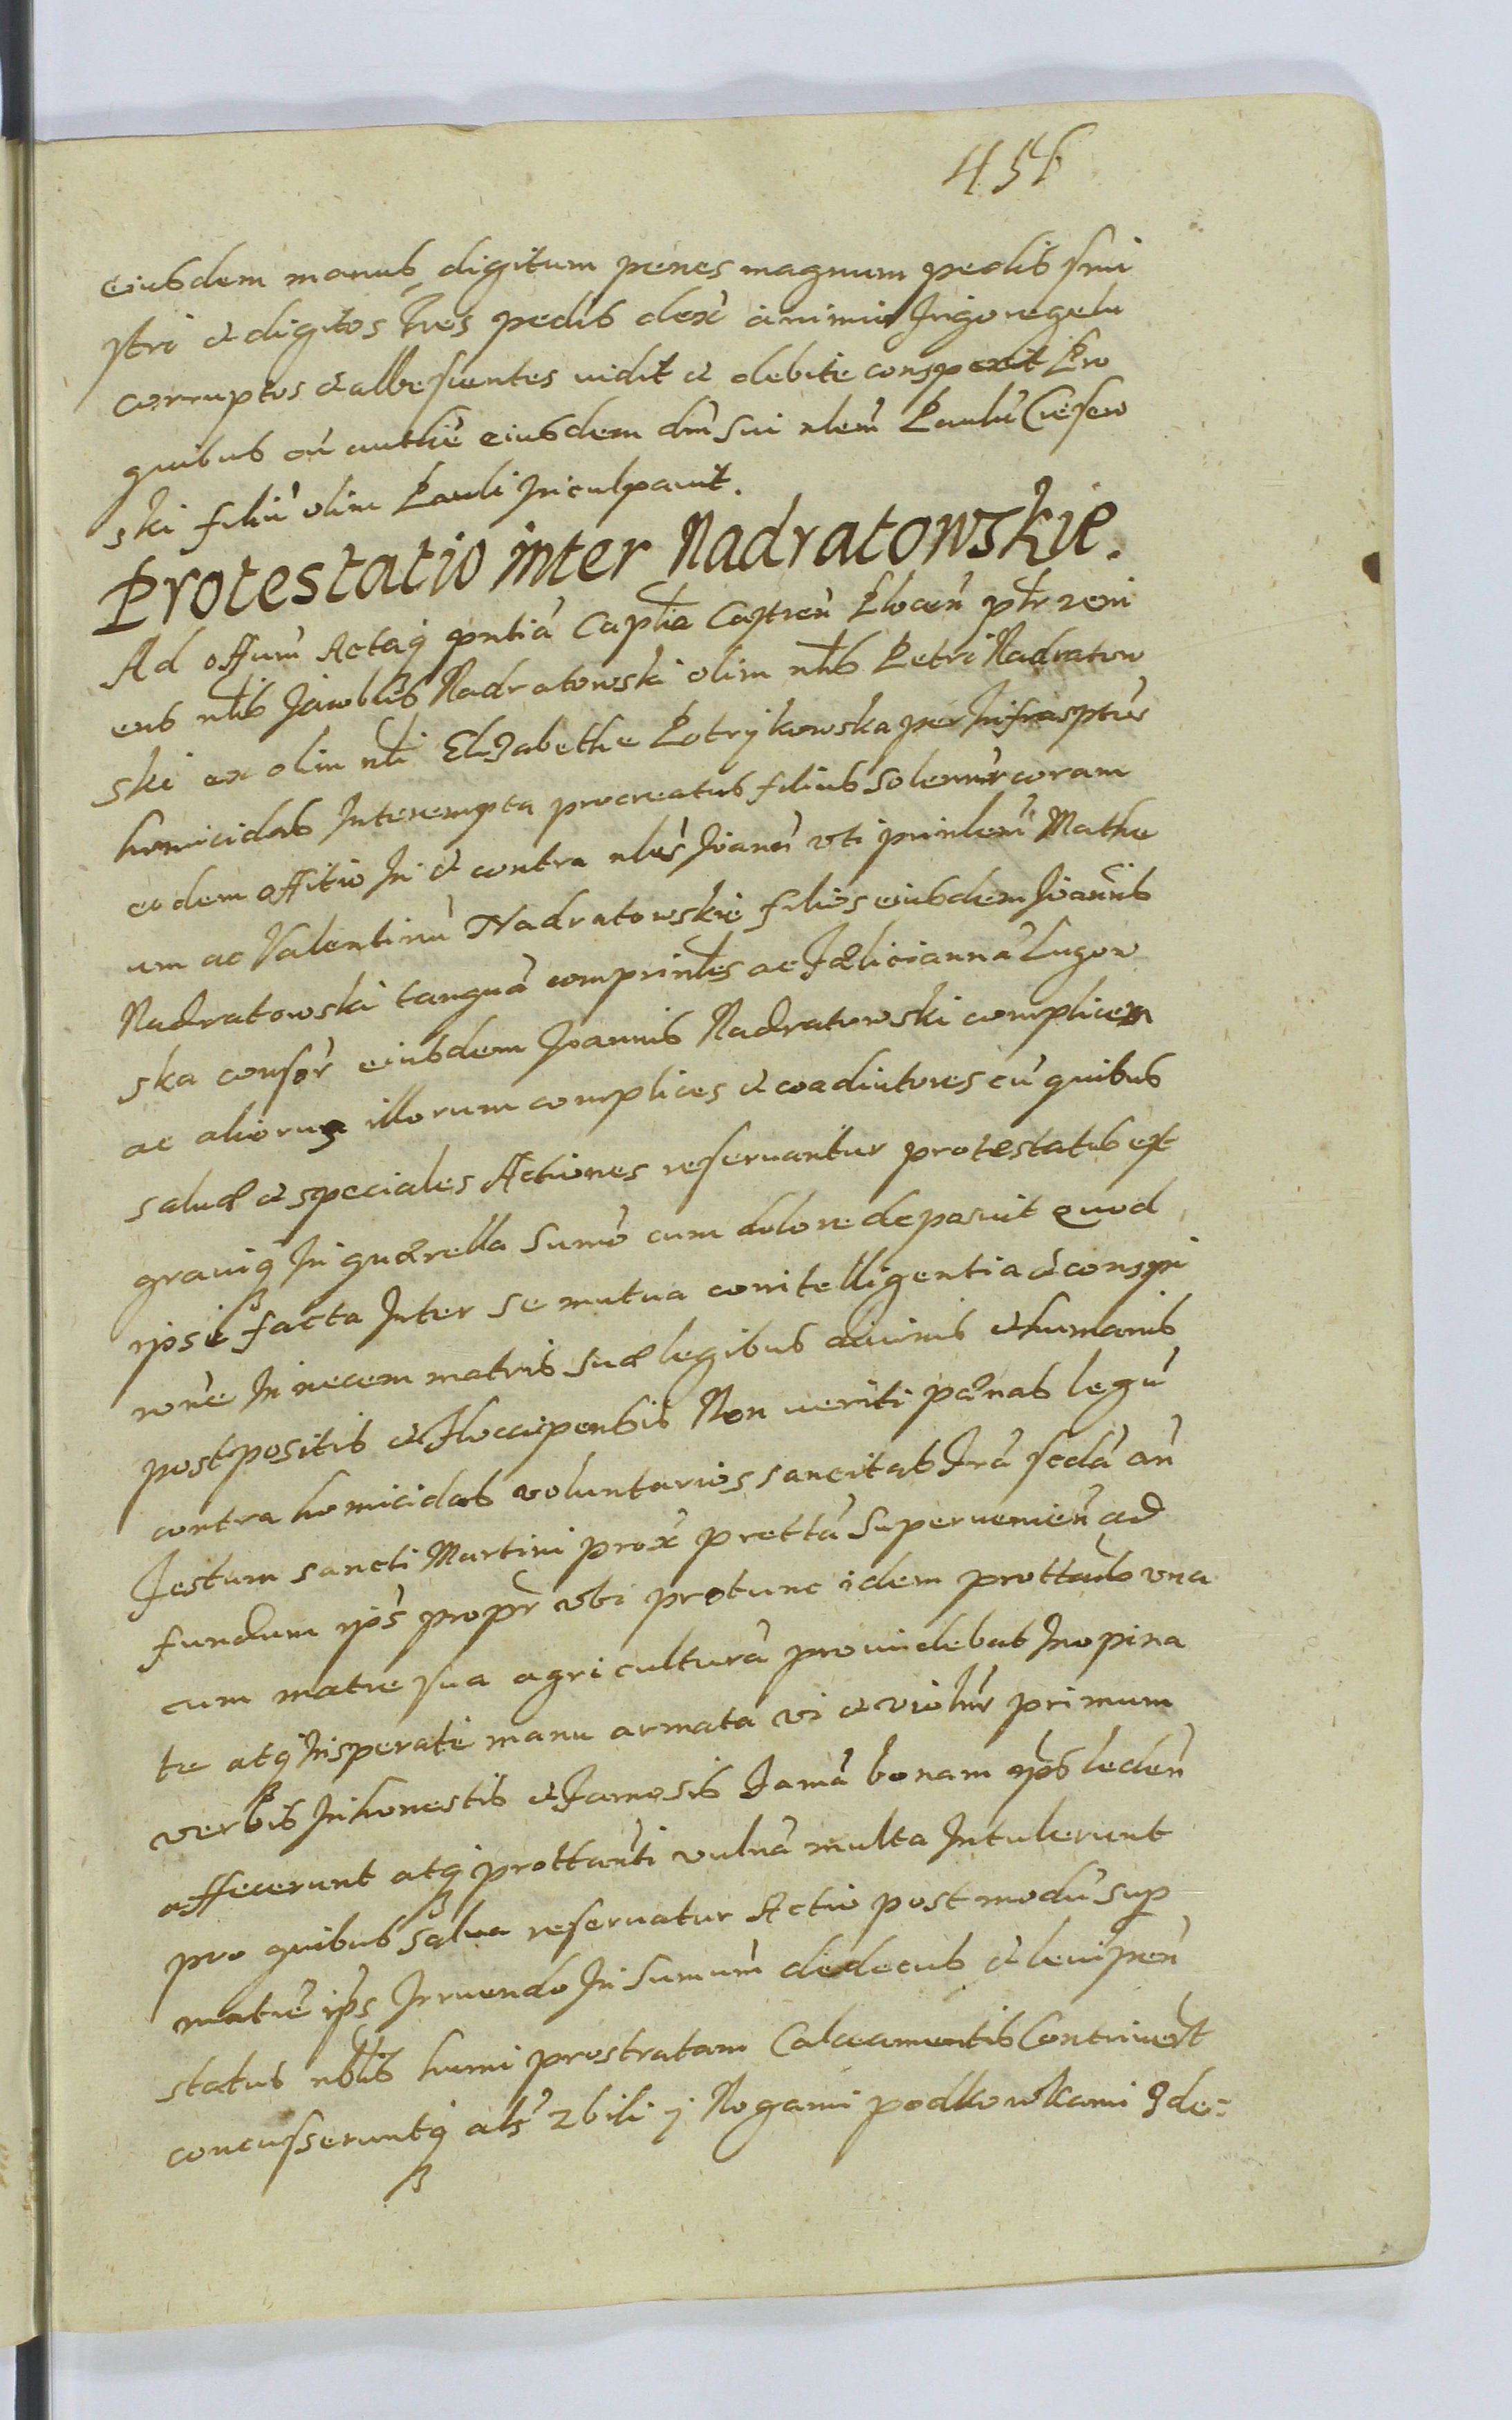 456
eiusdem manus digitum penes magnum pedis sini
stri et digitos Tres pedis dex̃ a nimio frigore gelu
corruptos et albescentes vidit et debite conspexit Pro
quibus oĩ authẽ eiusdem dñi sui nlem̃ Paulũ Ciesew
ski filiũ olim Pauli Inculpavit.
Protestatio inter Nadratowskie.
Ad offũm Actaq̃ pñtiã Capt̃lia Castreñ Plocen̄ ptr̃ veni
ens nĩlis Jacobus Nadratowski olim nĩlis Petri Nadratow
ski ex olim nli Elizabethe Potrykowska per Infrasptũs
homicidas Interempta procreatus filius solennr̃ coram
eodem offitio In et contra nlẽs Joanẽ vti prinlem̃ Mathe
um ac Valentinũ Nadratowskie filios eiusdem Joañis
Nadratowski tanquã comprinlẽs ac Fælicianna Lugow
ska consor̃ eiusdem Joannis Nadratowski complicem
ac aliorum illorum complices et coadiutores cũ quibus
saluæ et speciales Actiones reseruantur protestatus est
grauiq̃ In quærella Sumõ cum dolore deposuit Quod
ipsi facta Inter se mutua conitelligentia et conspi
rone In necem matris suæ legibus diuinis et humanis
postpositis et floccipensis Non veriti pænas legũ
contra homicidas voluntarios sancitas Frã secdã añ
Festum sancti Martini prox̃ prettã Superuenien̄ ad
fundum ipõs propr̃ vbi protunc idem prottans vna
cum matre sua agriculturã prouidebat Inopina
te atq̃ Insperate manu armata vi et violnr̃ primum
verbis Inhonestis et Famosis Famã bonam ipĩs leden̄
affecerunt atq̃ prottanti vulnã multa Intulerunt
pro quibus salua reseruatur Actio postmodũ sup̃
matrẽ ip̃s Irruendo In Sumum̃ dedecus et leuipen̄
status nobilis humi prostratam Calceamentis Contriuer̃t
concusseruntq̃ als̃ zbili y Nogami podkowkami zde=